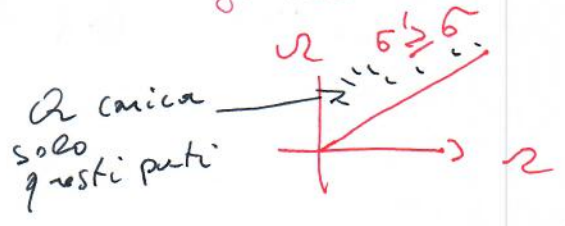 Ω
σ' ≥ σ
Q carica
solo
questi punti
Ω